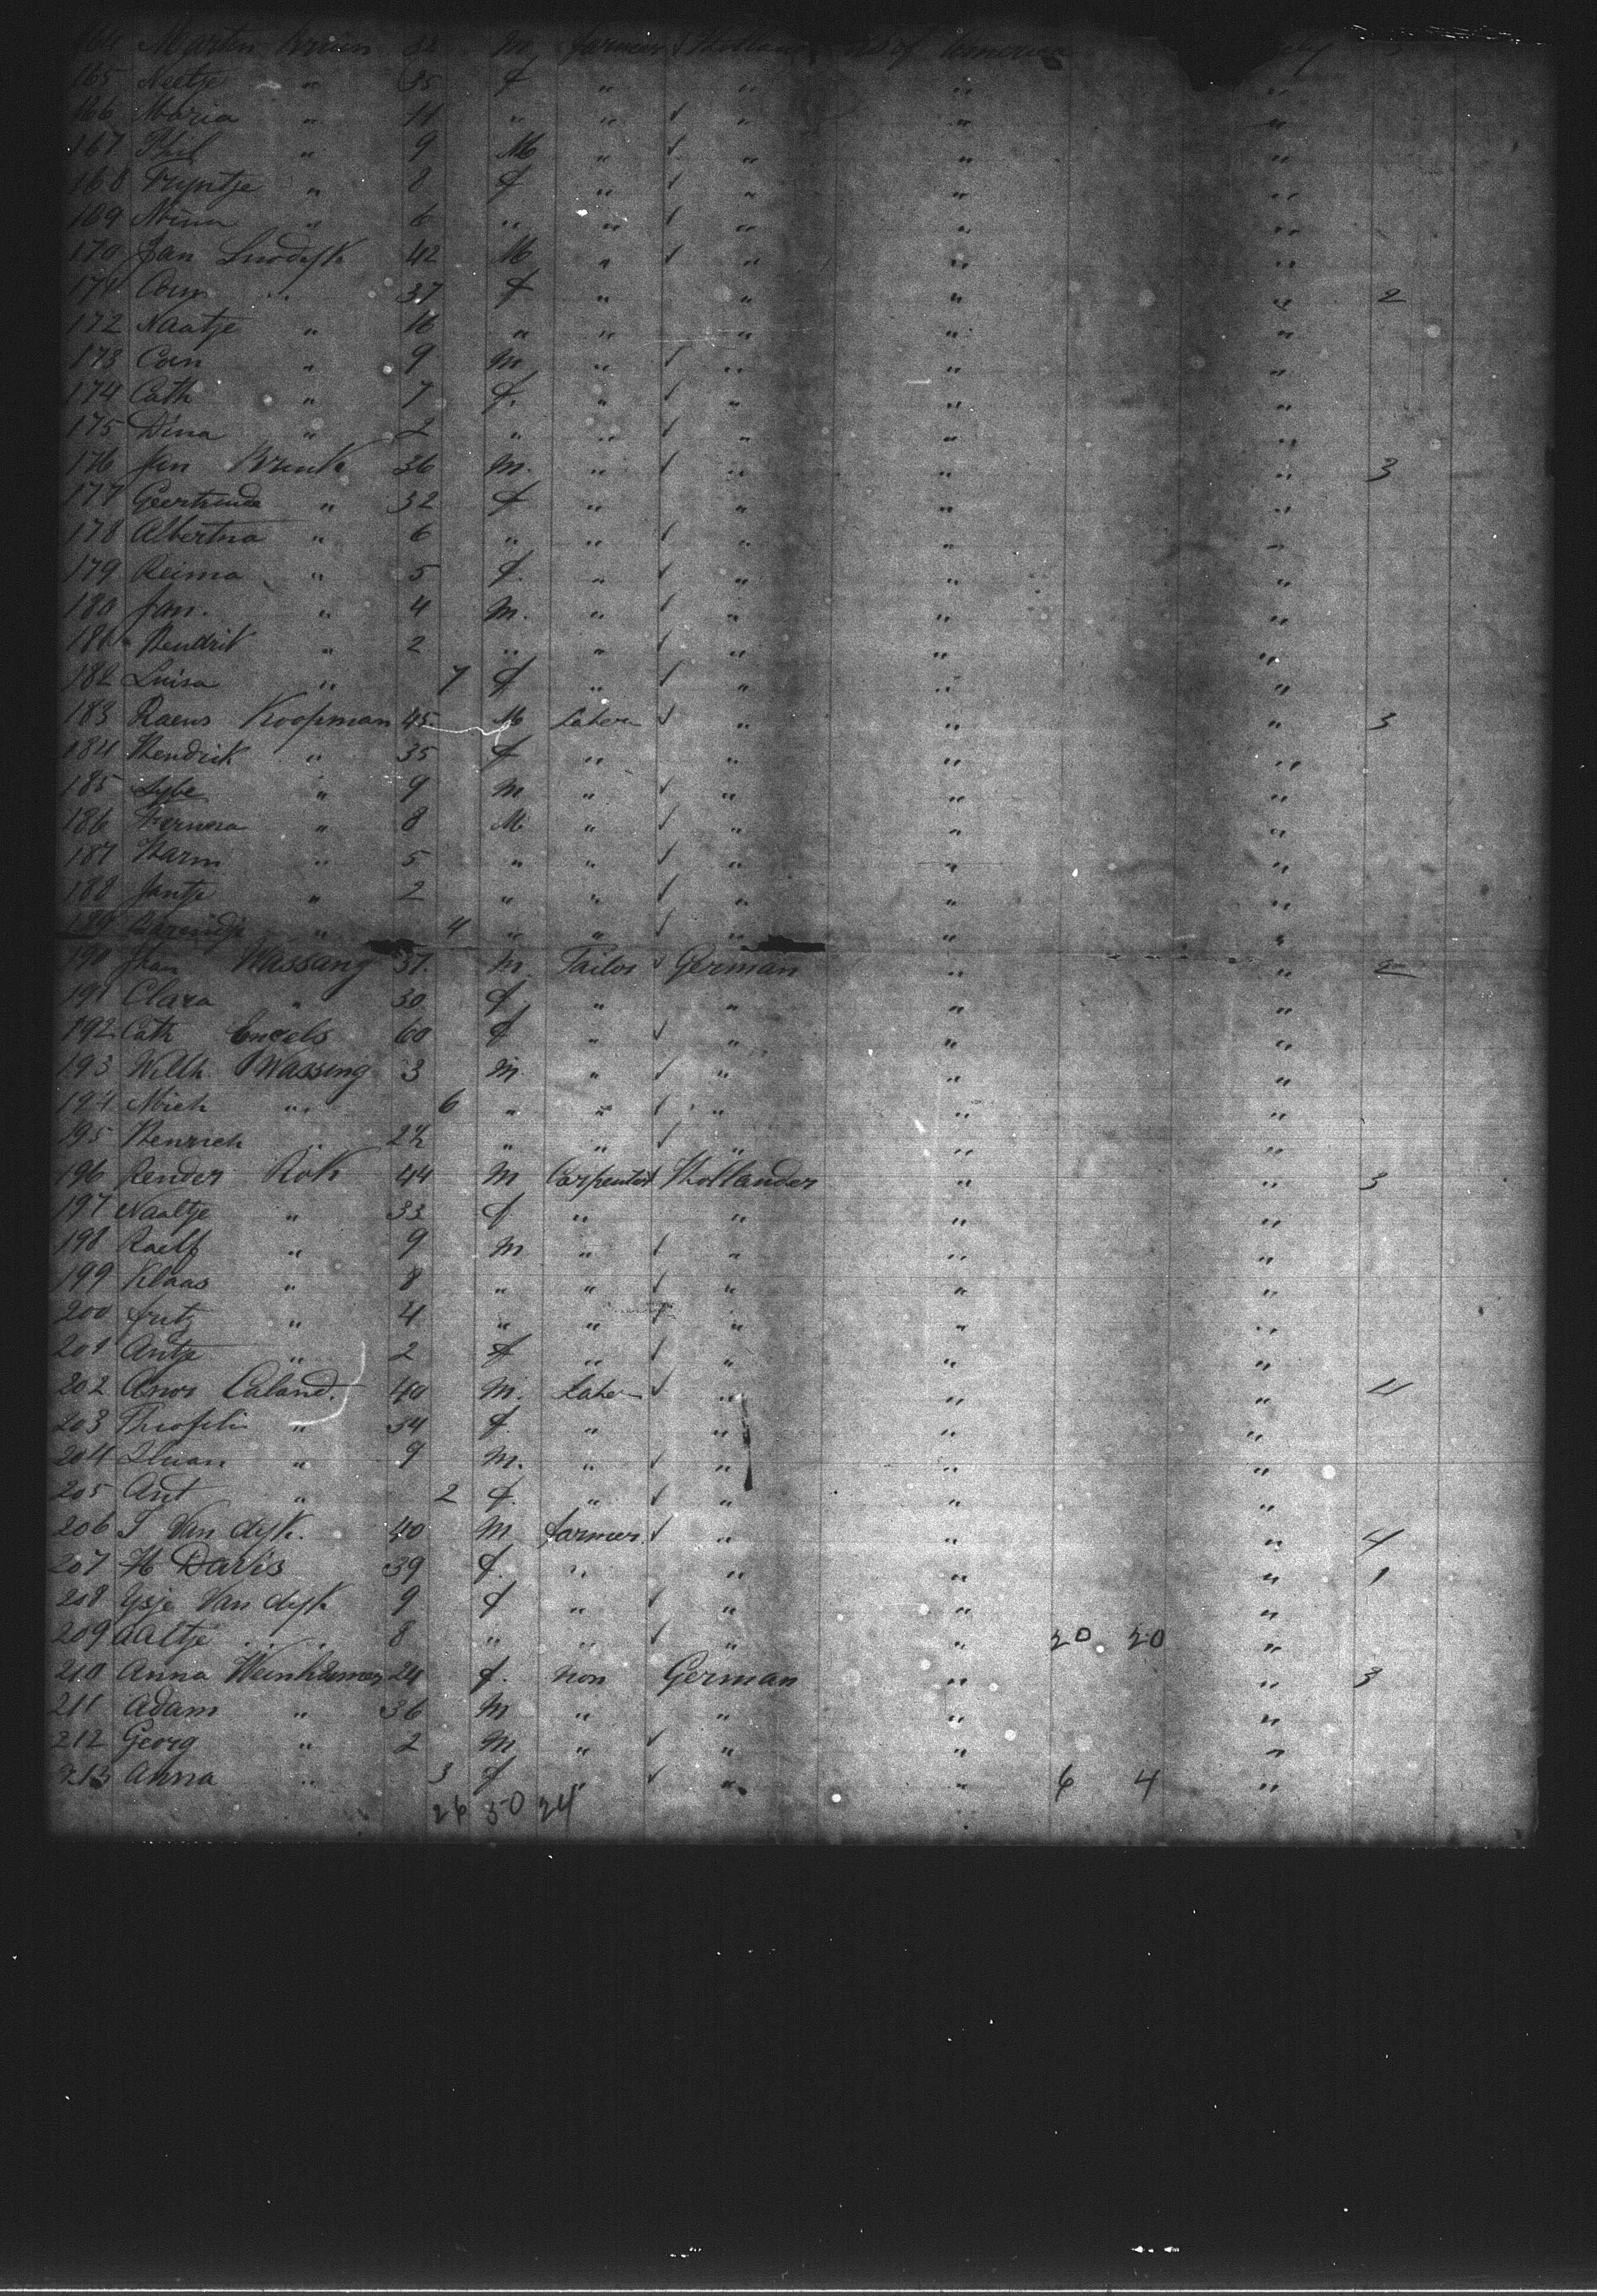 164 Martin Kruien 32 M farmer Holland US of America
165 Neeltje " 35 f " " " "
166 Maria " 11 " " " " "
167 Phil " 9 M " " " "
168 Tryntje " 8 f " " " "
169 " 6 " " " " "
170 Jan 42 M " " " "
171 Corn " 37 f " " " " 2
172 Naatje " 16 " " " " "
173 Corn " 9 M " " " "
174 Cath " 7 f. " " " "
175 Dina " 2 " " " " "
176 Jan Krenk 36 M. " " " " 3
177 Geertruida " 32 f " " " "
178 Albertna " 6 " " " " "
179 Reima " 5 f. " " " "
180 Jan. " 4 M. " " " "
181 Hendrik " 2 " " " " "
182 Luisa " 7 f " " " "
183 Koopman 45 M Labor " " " 3
184 Hendrik " 35 f " " " "
185 Sybe " 9 M " " " "
186 " 8 M " " " "
187 Harm " 5 " " " " "
188 Jantje " 2 " " " " "
189 " 4 " " " " "
190 Wassang 37. M. Tailor German " " 2
191 Clara " 30 f " " " "
192 Cath Engels 60 f " " " "
193 Wilh. Wassing 3 M. " " " "
194 Mich " 6 " " " " "
195 Henrich " " " " " "
196 Render Rok 44 M Carpenter Hollander " " 3
197 Naaltje " 33 f " " " "
198 Raelf " 9 M " " " "
199 Klaas " 8 " " " " "
200 fritz " 4 " " " " "
201 Antje " 2 f " " " "
202 Caland. 40 M. Labor " " " 4
203 " 34 f. " " " "
204 " 9 M. " " " "
205 Ant " 2 f. " " " "
206 T Van dyk. 40 M farmer " " " 4
207 H Davis 39 f. " " " " 1
208 Ysje Van dyk 9 f " " " "
209 Aaltje " " 8 " " " " 20 20 "
210 Anna 24 f. Non German " " 3
211 Adam " 36 M " " " "
212 Georg " 2 M " " " "
213 Anna " 3 f " " " 6 4 "
26 50 24